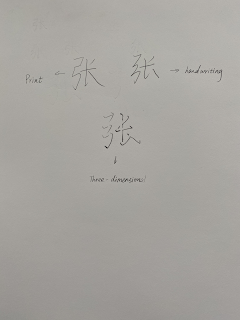 Print ← 张 张 → handwriting
张
↓
three-dimensional